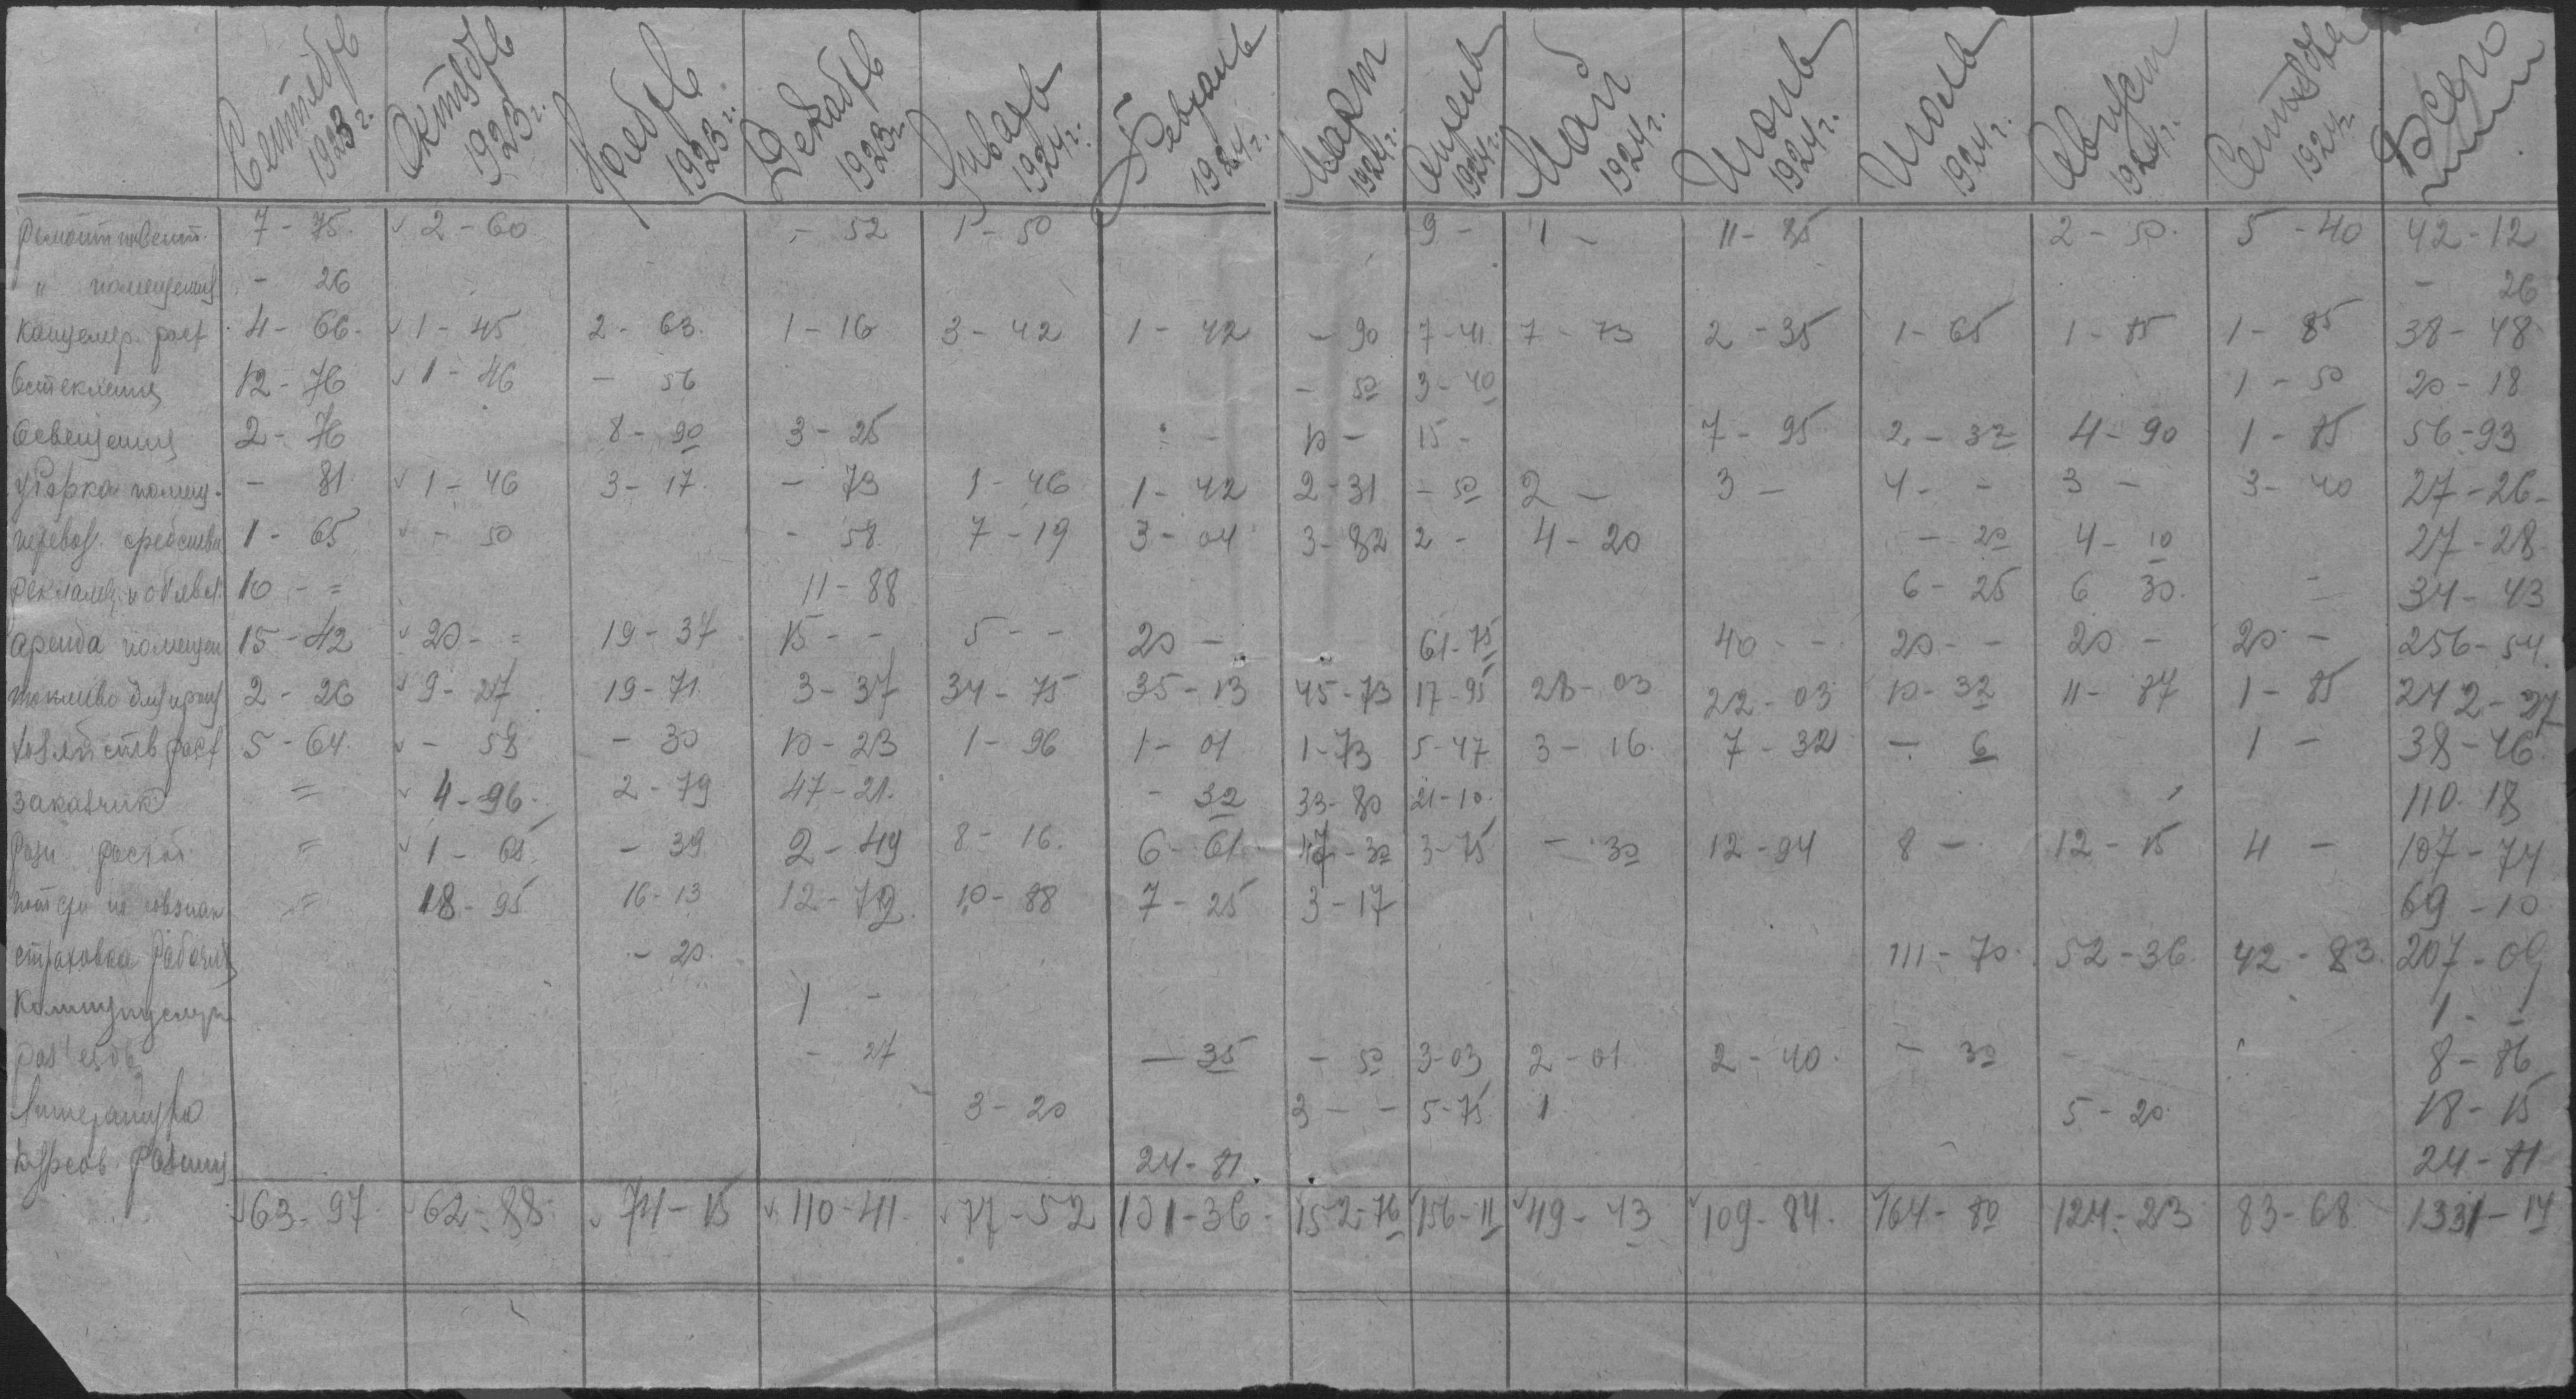 Сентябрь 1923 г. Октябрь 1923 г. Ноябрь 1923 г. Декабрь 1923 г. Январь 1924 г. Февраль 1924 г. Март 1924 г. Апрель 1924 г. Май 1924 г. Июнь 1924 г. Июль 1924 г. Август 1924 г. Сентября 1924 г. Всего
Ремонт инвент. 7-75 2-60 -52 1-50 9- 1- 11-85 2-50 5-40 42-12
" помещения -26 -26
Канцеляр. расх 4-66 1-45 2-63 1-16 3-42 1-42 -90 7-41 7-73 2-35 1-65 1-85 1-85 38-48
Остекления 12-76 1-46 -56 -50 3-40 1-50 20-18
Освещения 2-76 8-90 3-25 - 10- 15- 7-95 2-32 4-90 1-85 56-93
Уборка помещ. -81 1-46 3-17 -73 1-46 1-42 2-31 -50 2- 3- 4-- 3- 3-40 27-26-
перевоз. средства 1-65 -50 -58 7-19 3-04 3-82 2- 4-20 -20 4-10 27-28
реклама и объявл. 10-= 11-88 6-25 6 30 = 34-43
Аренда помещен 15-42 20-= 19-37 15-- 5-- 20- 61-75 40-- 20-- 20- 20- 256-54
топливо 2-26 9-27 19-71 3-37 34-75 35-13 45-73 17-95 28-03 22-03 10-32 11-87 1-85 242-27
Хозяйств расх 5-64 -58 -30 10-23 1-96 1-01 1-73 5-47 3-16 7-32 -6 1- 38-46
Заказчик = 4-96 2-79 47-21 -32 33-80 21-10 110.18
Разн расход = 1-65 -39 2-49 8-16 6-61 47-30 3-75 -30 12-94 8- 12-15 4- 107-74
потери на совзнак = 18-95 16-13 12-72 10-88 7-25 3-17 69-10
страховка рабочих -20 111-70 52-36 42-83 207-09
1- 1--
раз'езды -27 -35 -50 3-03 2-01 2-40 -30 - 8-86
Литература 3-20 3-- 5-75 1 5-20 18-15
Курсов. разниц 24-81 24-81
63-97 62-88 74-15 110-41 77-52 101-36 152-76 156-11 49-43 109-84 164-80 124-23 83-68 1331-14